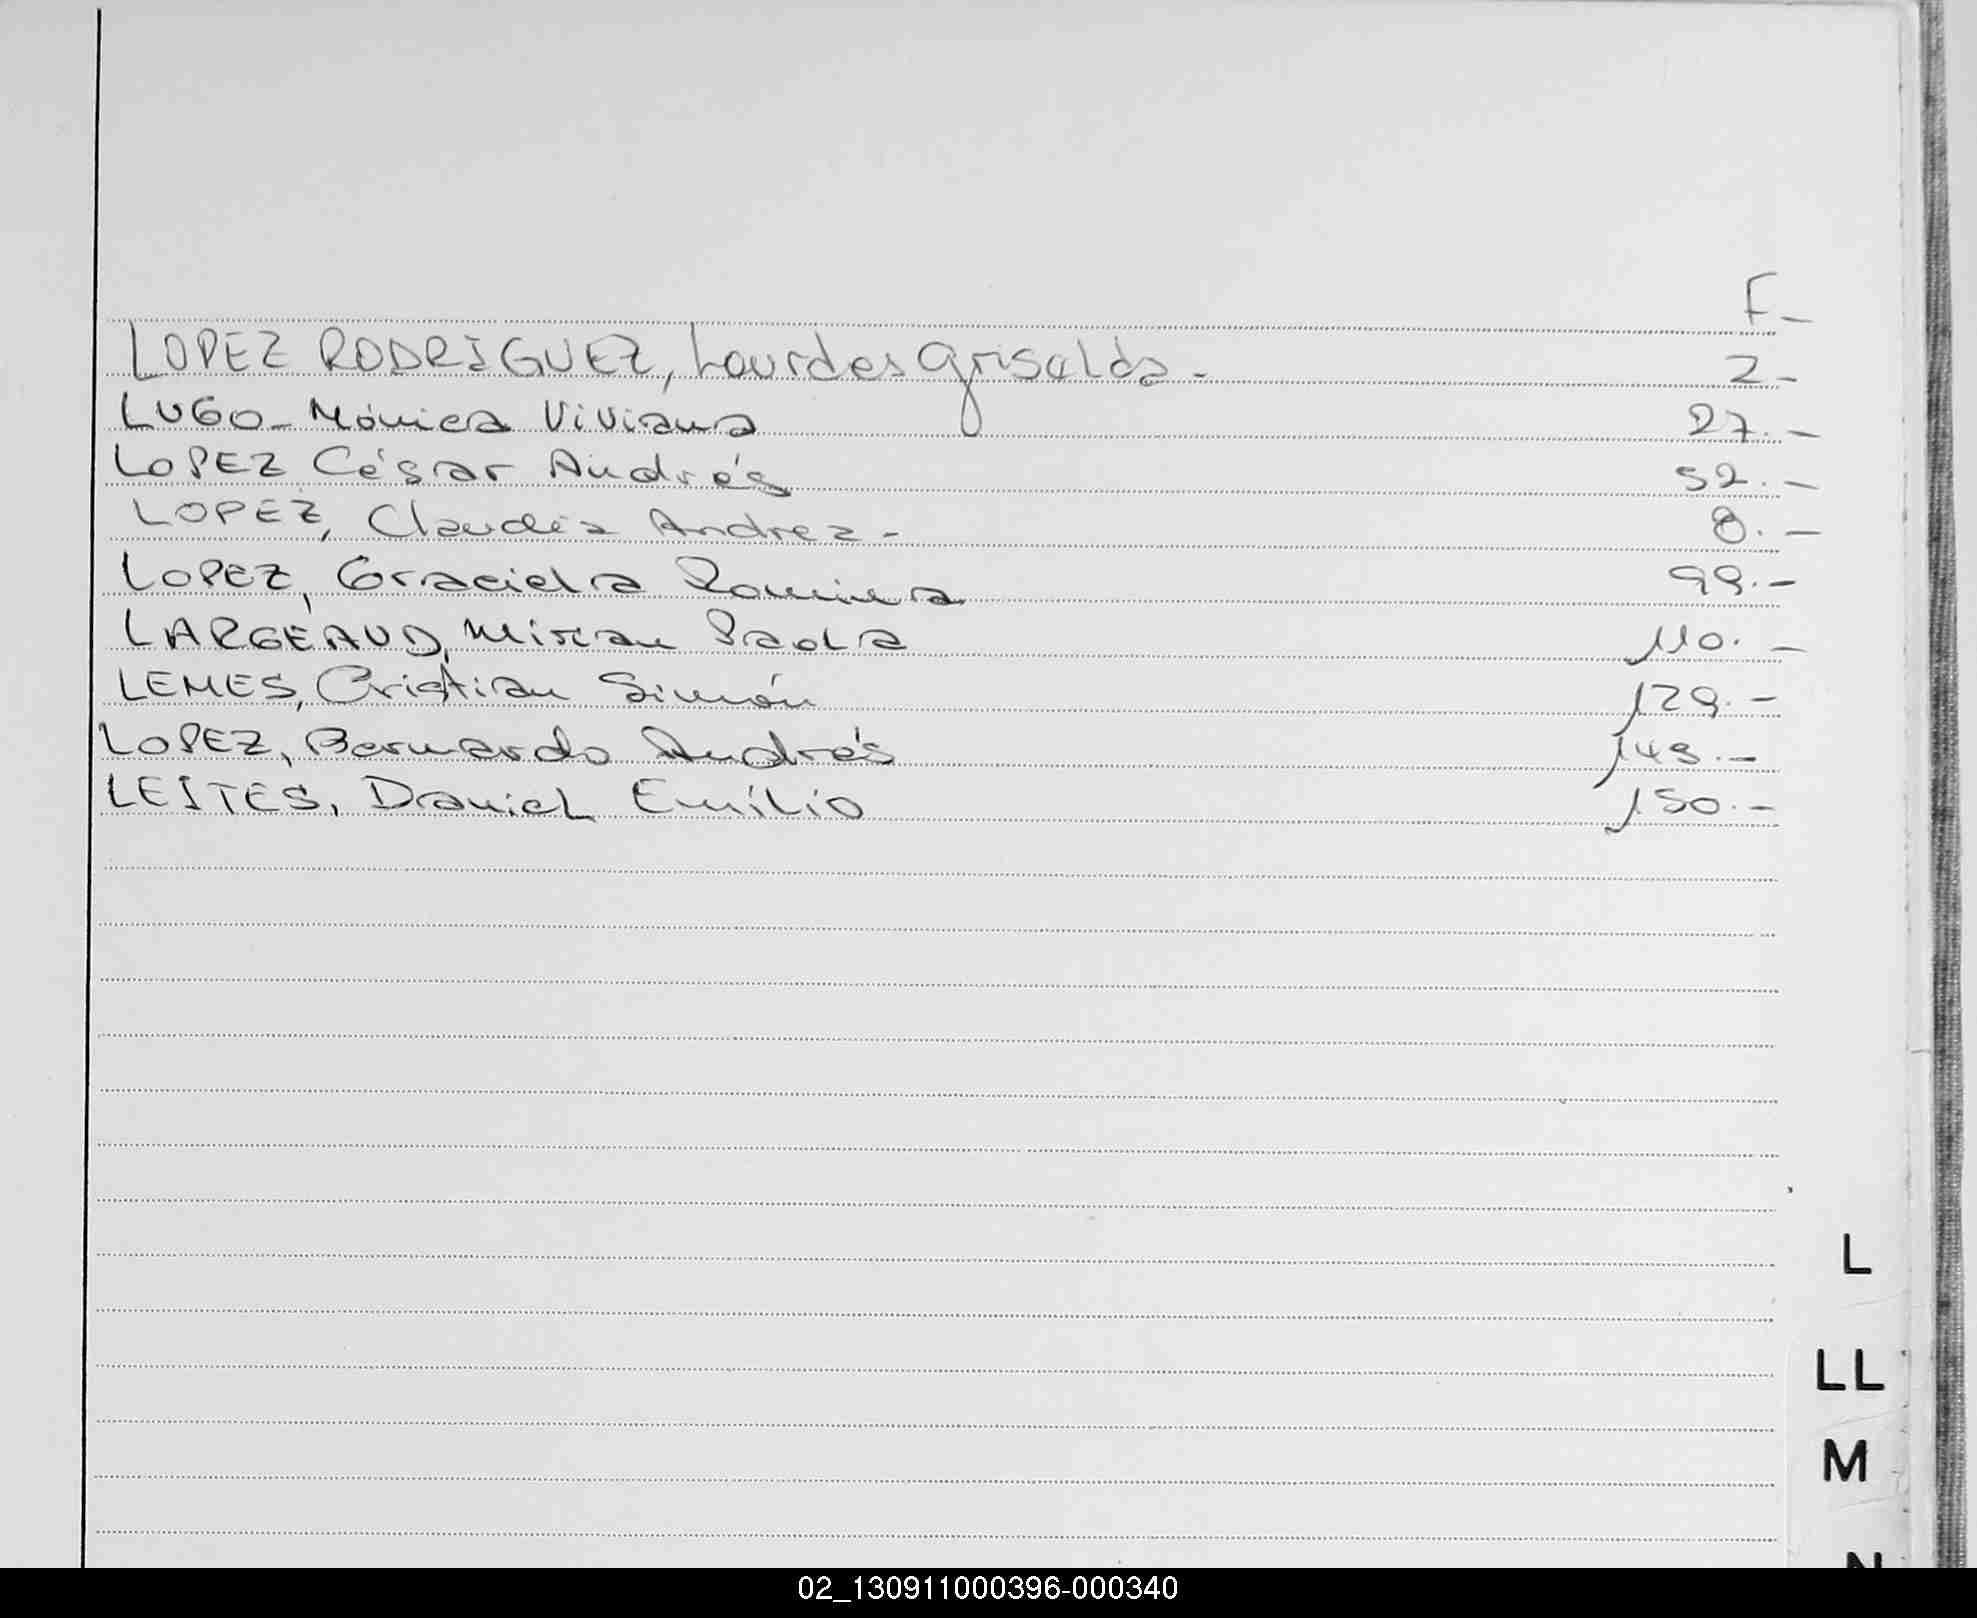 F-
LOPEZ RODRIGUEZ, Lourdes Griselda. - 2-
LUGO - Mónica Viviana 27.-
LOPEZ César Andrés 52.-
LOPEZ, Claudia Andrea - 8.-
LOPEZ, Graciela Romina 99.-
LARGEAUD, Mirian Paola 110.-
LEMES, Cristian Simón 129.-
LOPEZ, Bernardo Andrés 149.-
LEITES, Daniel Emilio 150.-
L
LL
M
N
02_130911000396-000340